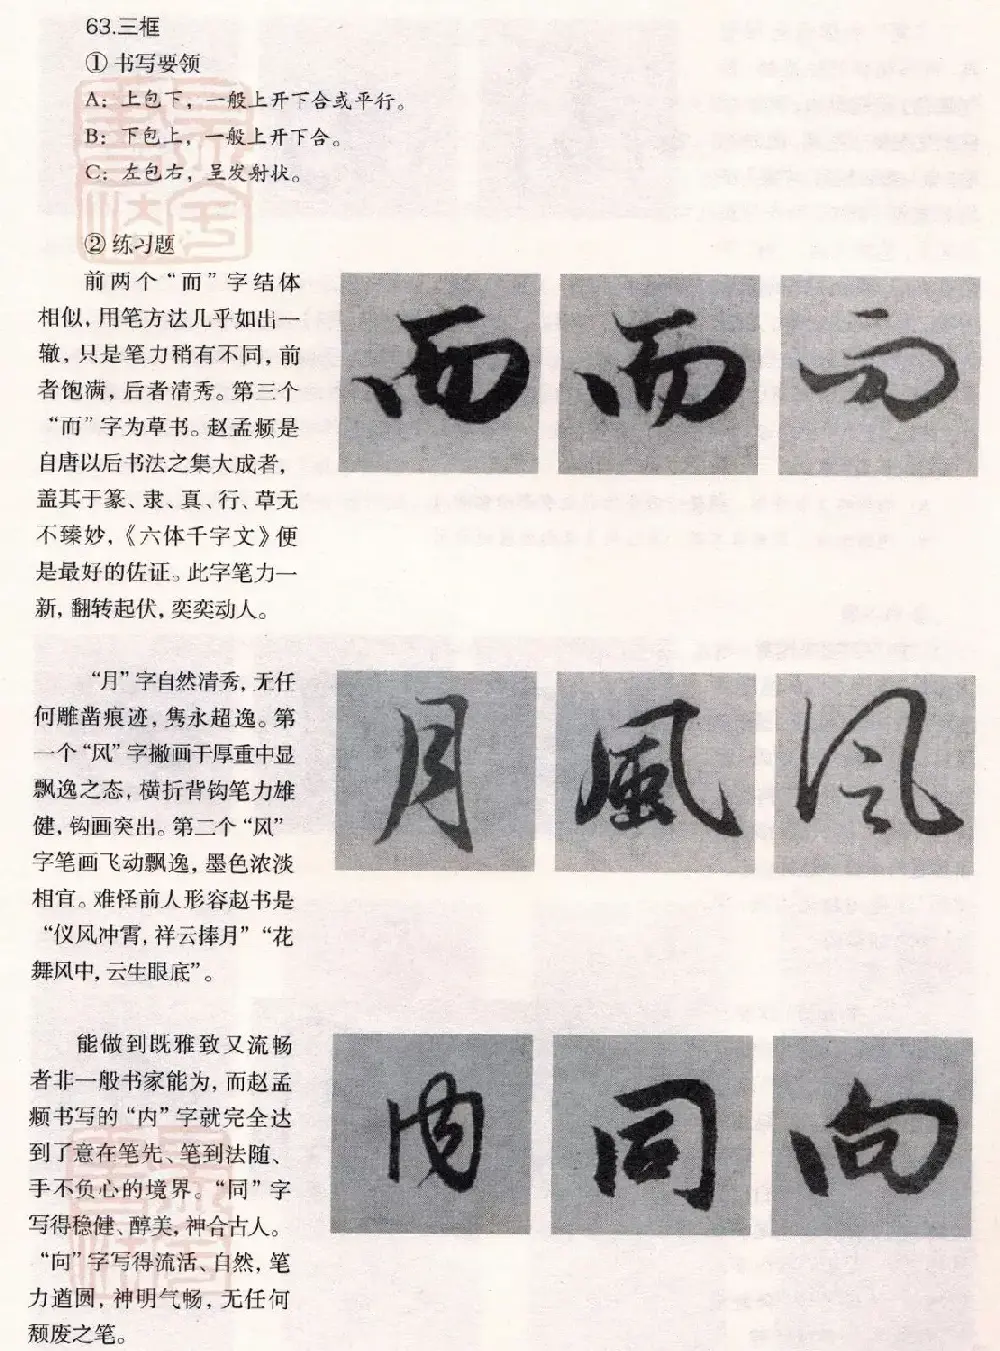 63.三框
① 书写要领
A：上包下，一般上开下合或平行。
B：下包上，一般上开下合。
C：左包右，呈发射状。
② 练习题
前两个“而”字结体
相似，用笔方法几乎如出一
辙，只是笔力稍有不同，前
者饱满，后者清秀。第三个
“而”字为草书。赵孟頫是
自唐以后书法之集大成者，
盖其于篆、隶、真、行、草无
不臻妙，《六体千字文》便
是最好的佐证。此字笔力一
新，翻转起伏，奕奕动人。
而 而 而
“月”字自然清秀，无任
何雕凿痕迹，隽永超逸。第
一个“风”字撇画干厚重中显
飘逸之态，横折背钩笔力雄
健，钩画突出。第二个“风”
字笔画飞动飘逸，墨色浓淡
相宜。难怪前人形容赵书是
“仪风冲霄，祥云捧月”“花
舞风中，云生眼底”。
月 風 风
能做到既雅致又流畅
者非一般书家能为，而赵孟
頫书写的“内”字就完全达
到了意在笔先、笔到法随、
手不负心的境界。“同”字
写得稳健、醇美，神合古人。
“向”字写得流活、自然，笔
力遒圆，神明气畅，无任何
颓废之笔。
内 同 向